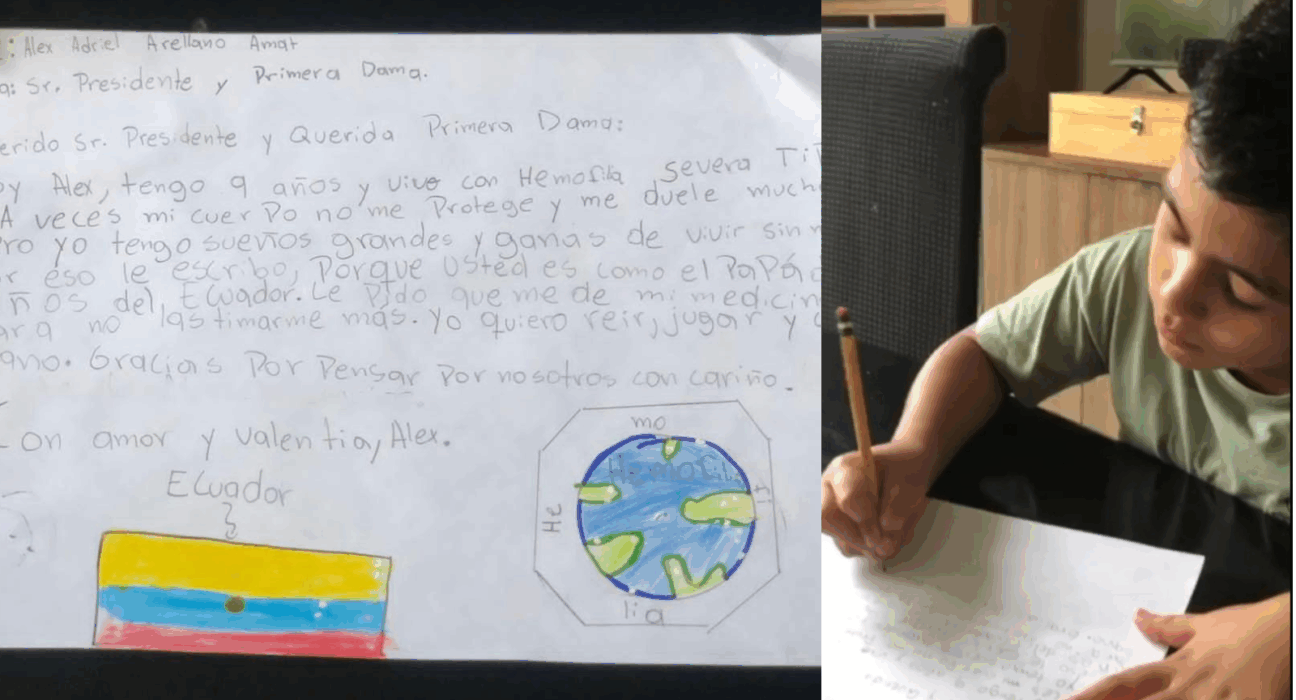 : Alex Adriel Arellano Amat
a: Sr. Presidente y Primera Dama.
erido Sr. Presidente y Querida Primera Dama:
oy Alex, tengo 9 años y vivo con Hemofilia severa Ti
A veces mi cuerpo no me Protege y me duele much
ro yo tengo sueños grandes y ganas de vivir sin
r eso le escribo, Porque usted es como el PaPá
iños del Ecuador. Le Pido que me de mi medicin
ara no lastimarme más. Yo quiero reir, jugar y
ano. Gracias Por Pensar Por nosotros con cariño.
Con amor y valentia, Alex.
Ecuador
mo
Hemofili
He
fi
lia